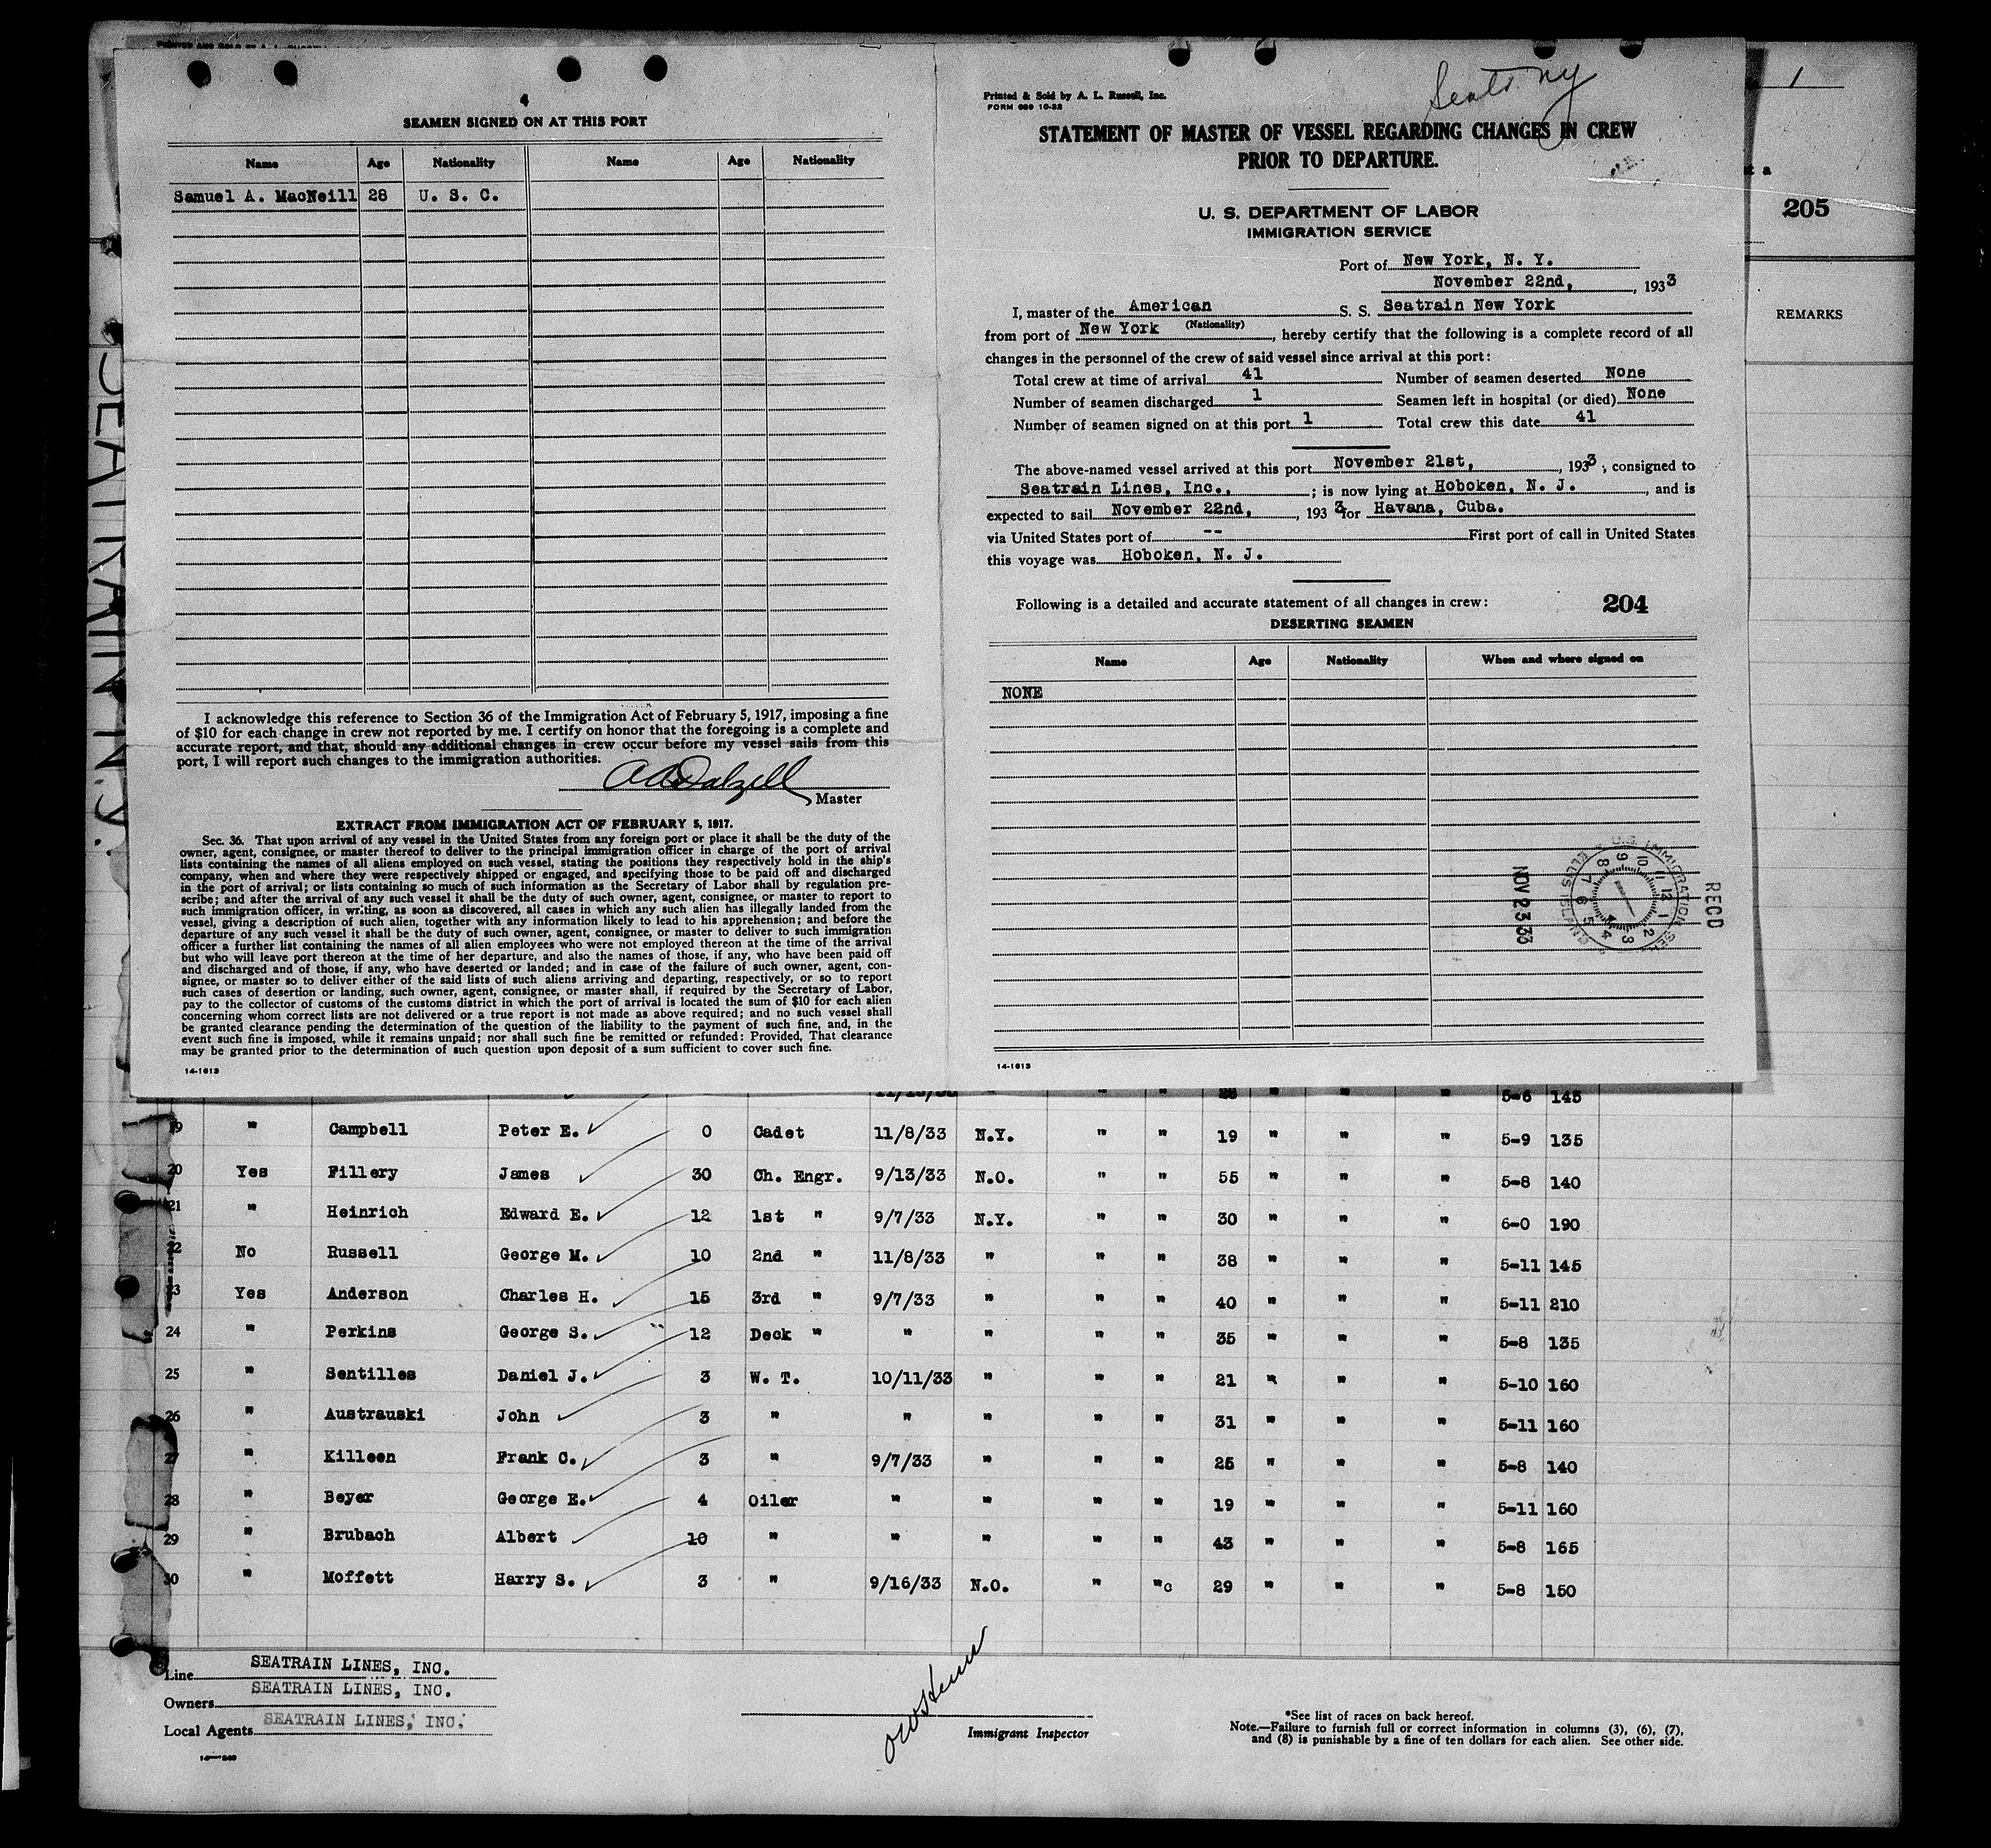 4
SEAMEN SIGNED ON AT THIS PORT
Name Age Nationality Name Age Nationality
Samuel A. MacNeill 28 U. S. C.
I acknowledge this reference to Section 36 of the Immigration Act of February 5, 1917, imposing a fine
of $10 for each change in crew not reported by me. I certify on honor that the foregoing is a complete and
accurate report, and that, should any additional changes in crew occur before my vessel sails from this
port, I will report such changes to the immigration authorities.
AADalzell
Master
EXTRACT FROM IMMIGRATION ACT OF FEBRUARY 5, 1917.
Sec. 36. That upon arrival of any vessel in the United States from any foreign port or place it shall be the duty of the
owner, agent, consignee, or master thereof to deliver to the principal immigration officer in charge of the port of arrival
lists containing the names of all aliens employed on such vessel, stating the positions they respectively hold in the ship's
company, when and where they were respectively shipped or engaged, and specifying those to be paid off and discharged
in the port of arrival; or lists containing so much of such information as the Secretary of Labor shall by regulation pre-
scribe; and after the arrival of any such vessel it shall be the duty of such owner, agent, consignee, or master to report to
such immigration officer, in writing, as soon as discovered, all cases in which any such alien has illegally landed from the
vessel, giving a description of such alien, together with any information likely to lead to his apprehension; and before the
departure of any such vessel it shall be the duty of such owner, agent, consignee, or master to deliver to such immigration
officer a further list containing the names of all alien employees who were not employed thereon at the time of the arrival
but who will leave port thereon at the time of her departure, and also the names of those, if any, who have been paid off
and discharged and of those, if any, who have deserted or landed; and in case of the failure of such owner, agent, con-
signee, or master so to deliver either of the said lists of such aliens arriving and departing, respectively, or so to report
such cases of desertion or landing, such owner, agent, consignee, or master shall, if required by the Secretary of Labor,
pay to the collector of customs of the customs district in which the port of arrival is located the sum of $10 for each alien
concerning whom correct lists are not delivered or a true report is not made as above required; and no such vessel shall
be granted clearance pending the determination of the question of the liability to the payment of such fine, and, in the
event such fine is imposed, while it remains unpaid; nor shall such fine be remitted or refunded: Provided, That clearance
may be granted prior to the determination of such question upon deposit of a sum sufficient to cover such fine.
14-1613
Printed & Sold by A. L. Russell, Inc.
FORM 689 10-32
Seatr NY
STATEMENT OF MASTER OF VESSEL REGARDING CHANGES IN CREW
PRIOR TO DEPARTURE.
U. S. DEPARTMENT OF LABOR
IMMIGRATION SERVICE
Port of New York, N. Y.
November 22nd, , 1933
I, master of the American S. S. Seatrain New York
(Nationality)
from port of New York , hereby certify that the following is a complete record of all
changes in the personnel of the crew of said vessel since arrival at this port:
Total crew at time of arrival 41 Number of seamen deserted None
Number of seamen discharged 1 Seamen left in hospital (or died) None
Number of seamen signed on at this port 1 Total crew this date 41
The above-named vessel arrived at this port November 21st, , 1933 , consigned to
Seatrain Lines, Inc., ; is now lying at Hoboken, N. J. , and is
expected to sail November 22nd, , 1933 for Havana, Cuba.
via United States port of -- First port of call in United States
this voyage was Hoboken, N. J.
Following is a detailed and accurate statement of all changes in crew: 204
DESERTING SEAMEN
Name Age Nationality When and where signed on
NONE
U.S. IMMIGRATION SER. ELLIS ISLAND
RECD
NOV 23 33
14-1613
1
t a
205
REMARKS
SEATRAIN N.Y.
11/15/33 " " 28 " " " 5-6 145
19 " Campbell Peter E. 0 Cadet 11/8/33 N.Y. " " 19 " " " 5-9 135
20 Yes Fillery James 30 Ch. Engr. 9/13/33 N.O. " " 55 " " " 5-8 140
21 " Heinrich Edward E. 12 1st " 9/7/33 N.Y. " " 30 " " " 6-0 190
22 No Russell George M. 10 2nd " 11/8/33 " " " 38 " " " 5-11 145
23 Yes Anderson Charles H. 15 3rd " 9/7/33 " " " 40 " " " 5-11 210
24 " Perkins George S. 12 Deck " " " " " 35 " " " 5-8 135
25 " Sentilles Daniel J. 3 W. T. 10/11/33 " " " 21 " " " 5-10 160
26 " Austrauski John 3 " " " " " 31 " " " 5-11 160
27 " Killeen Frank C. 3 " 9/7/33 " " " 25 " " " 5-8 140
28 " Beyer George E. 4 Oiler " " " " 19 " " " 5-11 160
29 " Brubach Albert 10 " " " " " 43 " " " 5-8 165
30 " Moffett Harry S. 3 " 9/16/33 N.O. " "c 29 " " " 5-8 150
Line SEATRAIN LINES, INC.
Owners SEATRAIN LINES, INC.
Local Agents SEATRAIN LINES, INC.
Immigrant Inspector
*See list of races on back hereof.
Note.—Failure to furnish full or correct information in columns (3), (6), (7),
and (8) is punishable by a fine of ten dollars for each alien. See other side.